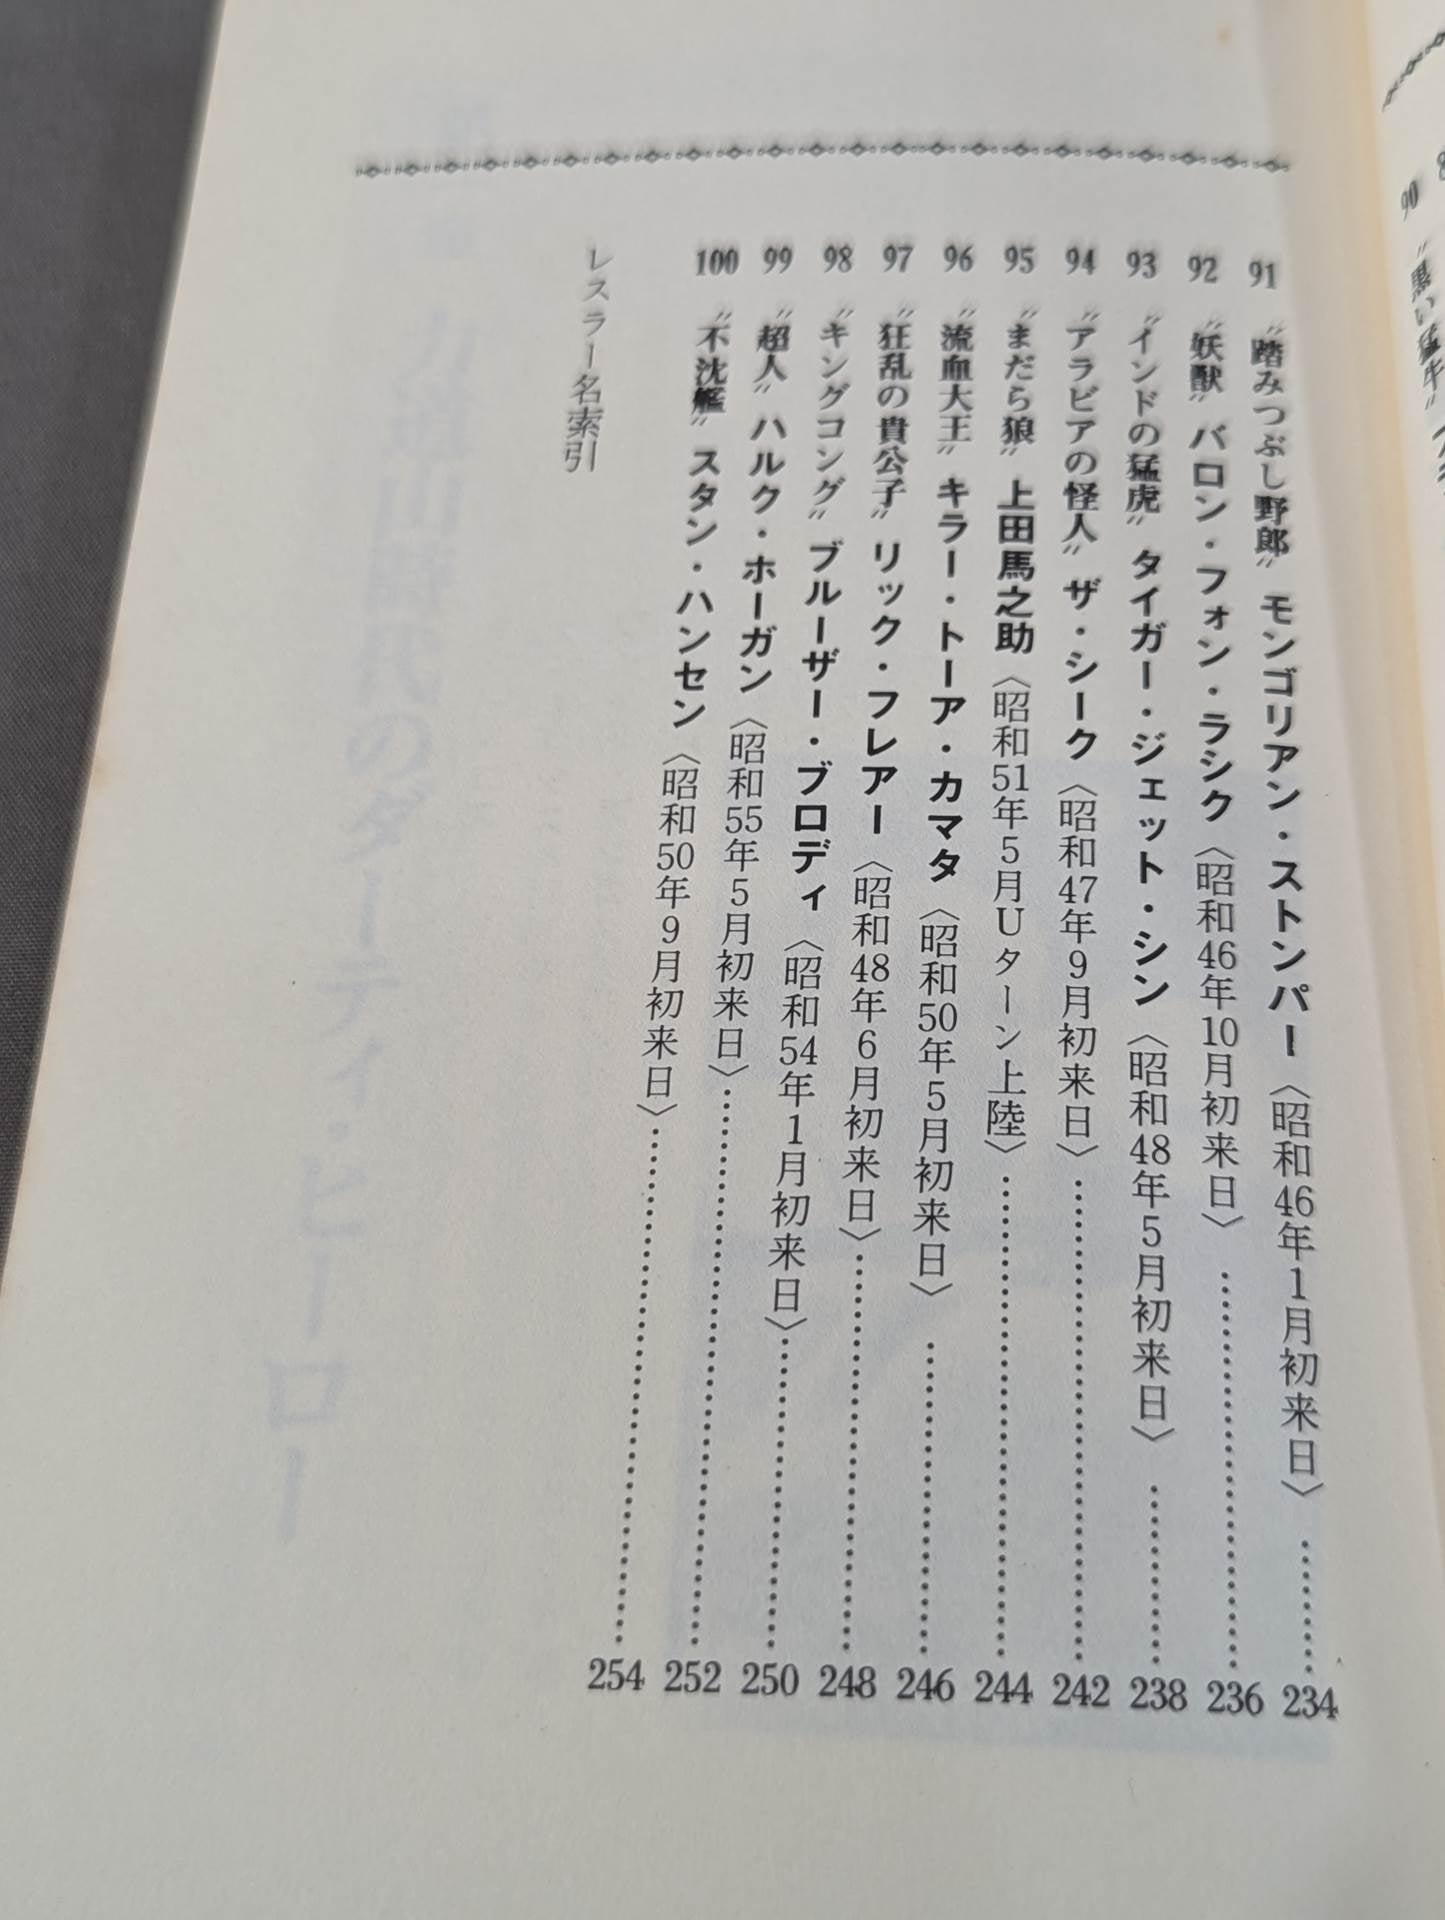 90 〝黒い猛牛〟
91 〝踏みつぶし野郎〟モンゴリアン・ストンパー〈昭和46年1月初来日〉…………234
92 〝妖獣〟バロン・フォン・ラシク〈昭和46年10月初来日〉…………236
93 〝インドの猛虎〟タイガー・ジェット・シン〈昭和48年5月初来日〉…………238
94 〝アラビアの怪人〟ザ・シーク〈昭和47年9月初来日〉…………242
95 〝まだら狼〟上田馬之助〈昭和51年5月Uターン上陸〉…………244
96 〝流血大王〟キラー・トーア・カマタ〈昭和50年5月初来日〉…………246
97 〝狂乱の貴公子〟リック・フレアー〈昭和48年6月初来日〉…………248
98 〝キングコング〟ブルーザー・ブロディ〈昭和54年1月初来日〉…………250
99 〝超人〟ハルク・ホーガン〈昭和55年5月初来日〉…………252
100 〝不沈艦〟スタン・ハンセン〈昭和50年9月初来日〉…………254
レスラー名索引